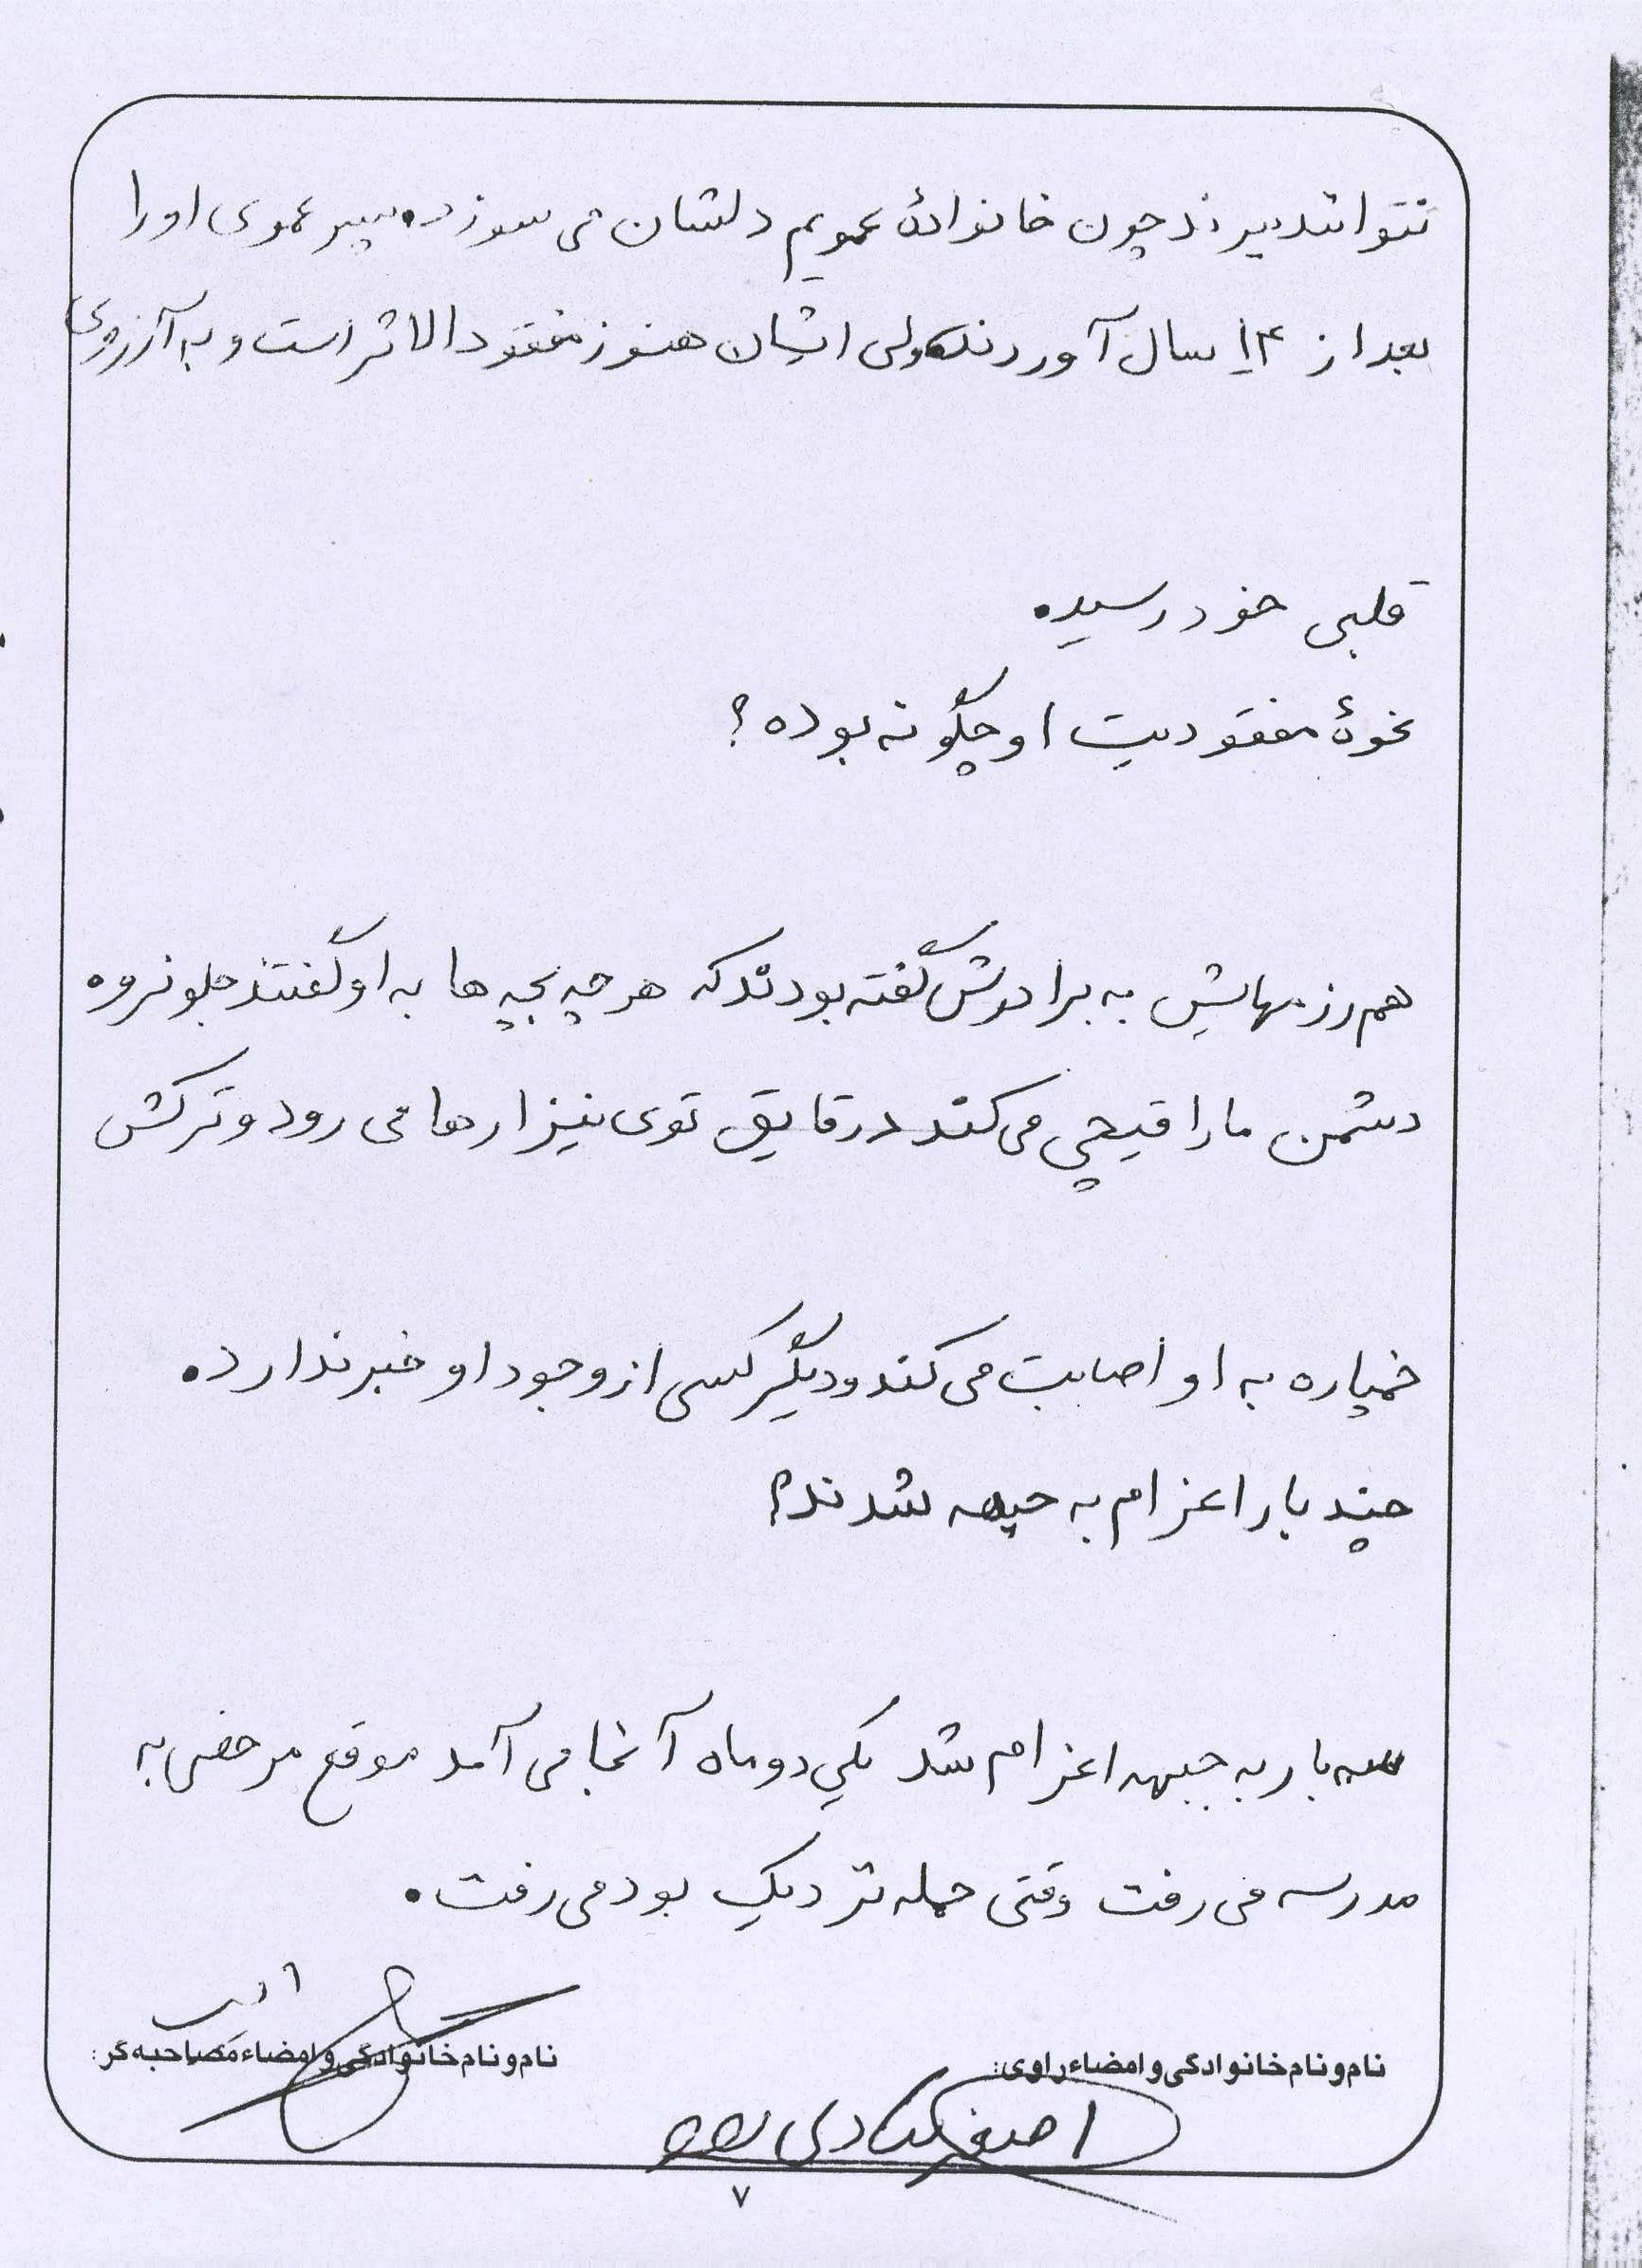 نتوانند ببرند چون خانوادهٔ عمویم دلشان می سوزد. پسر عموی او را
بعد از ۱۴ سال آوردند ولی ایشان هنوز مفقودالاثر است و به آرزوی
قلبی خود رسیده
نحوهٔ مفقودیت او چگونه بوده؟
هم رزمهایش به برادرش گفته بودند که هر چه بچه ها به او گفتند جلو نرو
دشمن ما را قیچی می کند در قایق توی نیزارها می رود و ترکش
خمپاره به او اصابت می کند و دیگر کسی از وجود او خبر ندارد.
چند بار اعزام به جبهه شدند؟
سه بار به جبهه اعزام شد یکی دو ماه آنجا می آمد موقع مرخصی به
مدرسه می رفت وقتی حمله نزدیک بود می رفت.
نام و نام خانوادگی و امضاء راوی:
نام و نام خانوادگی و امضاء مصاحبه گر:
۷